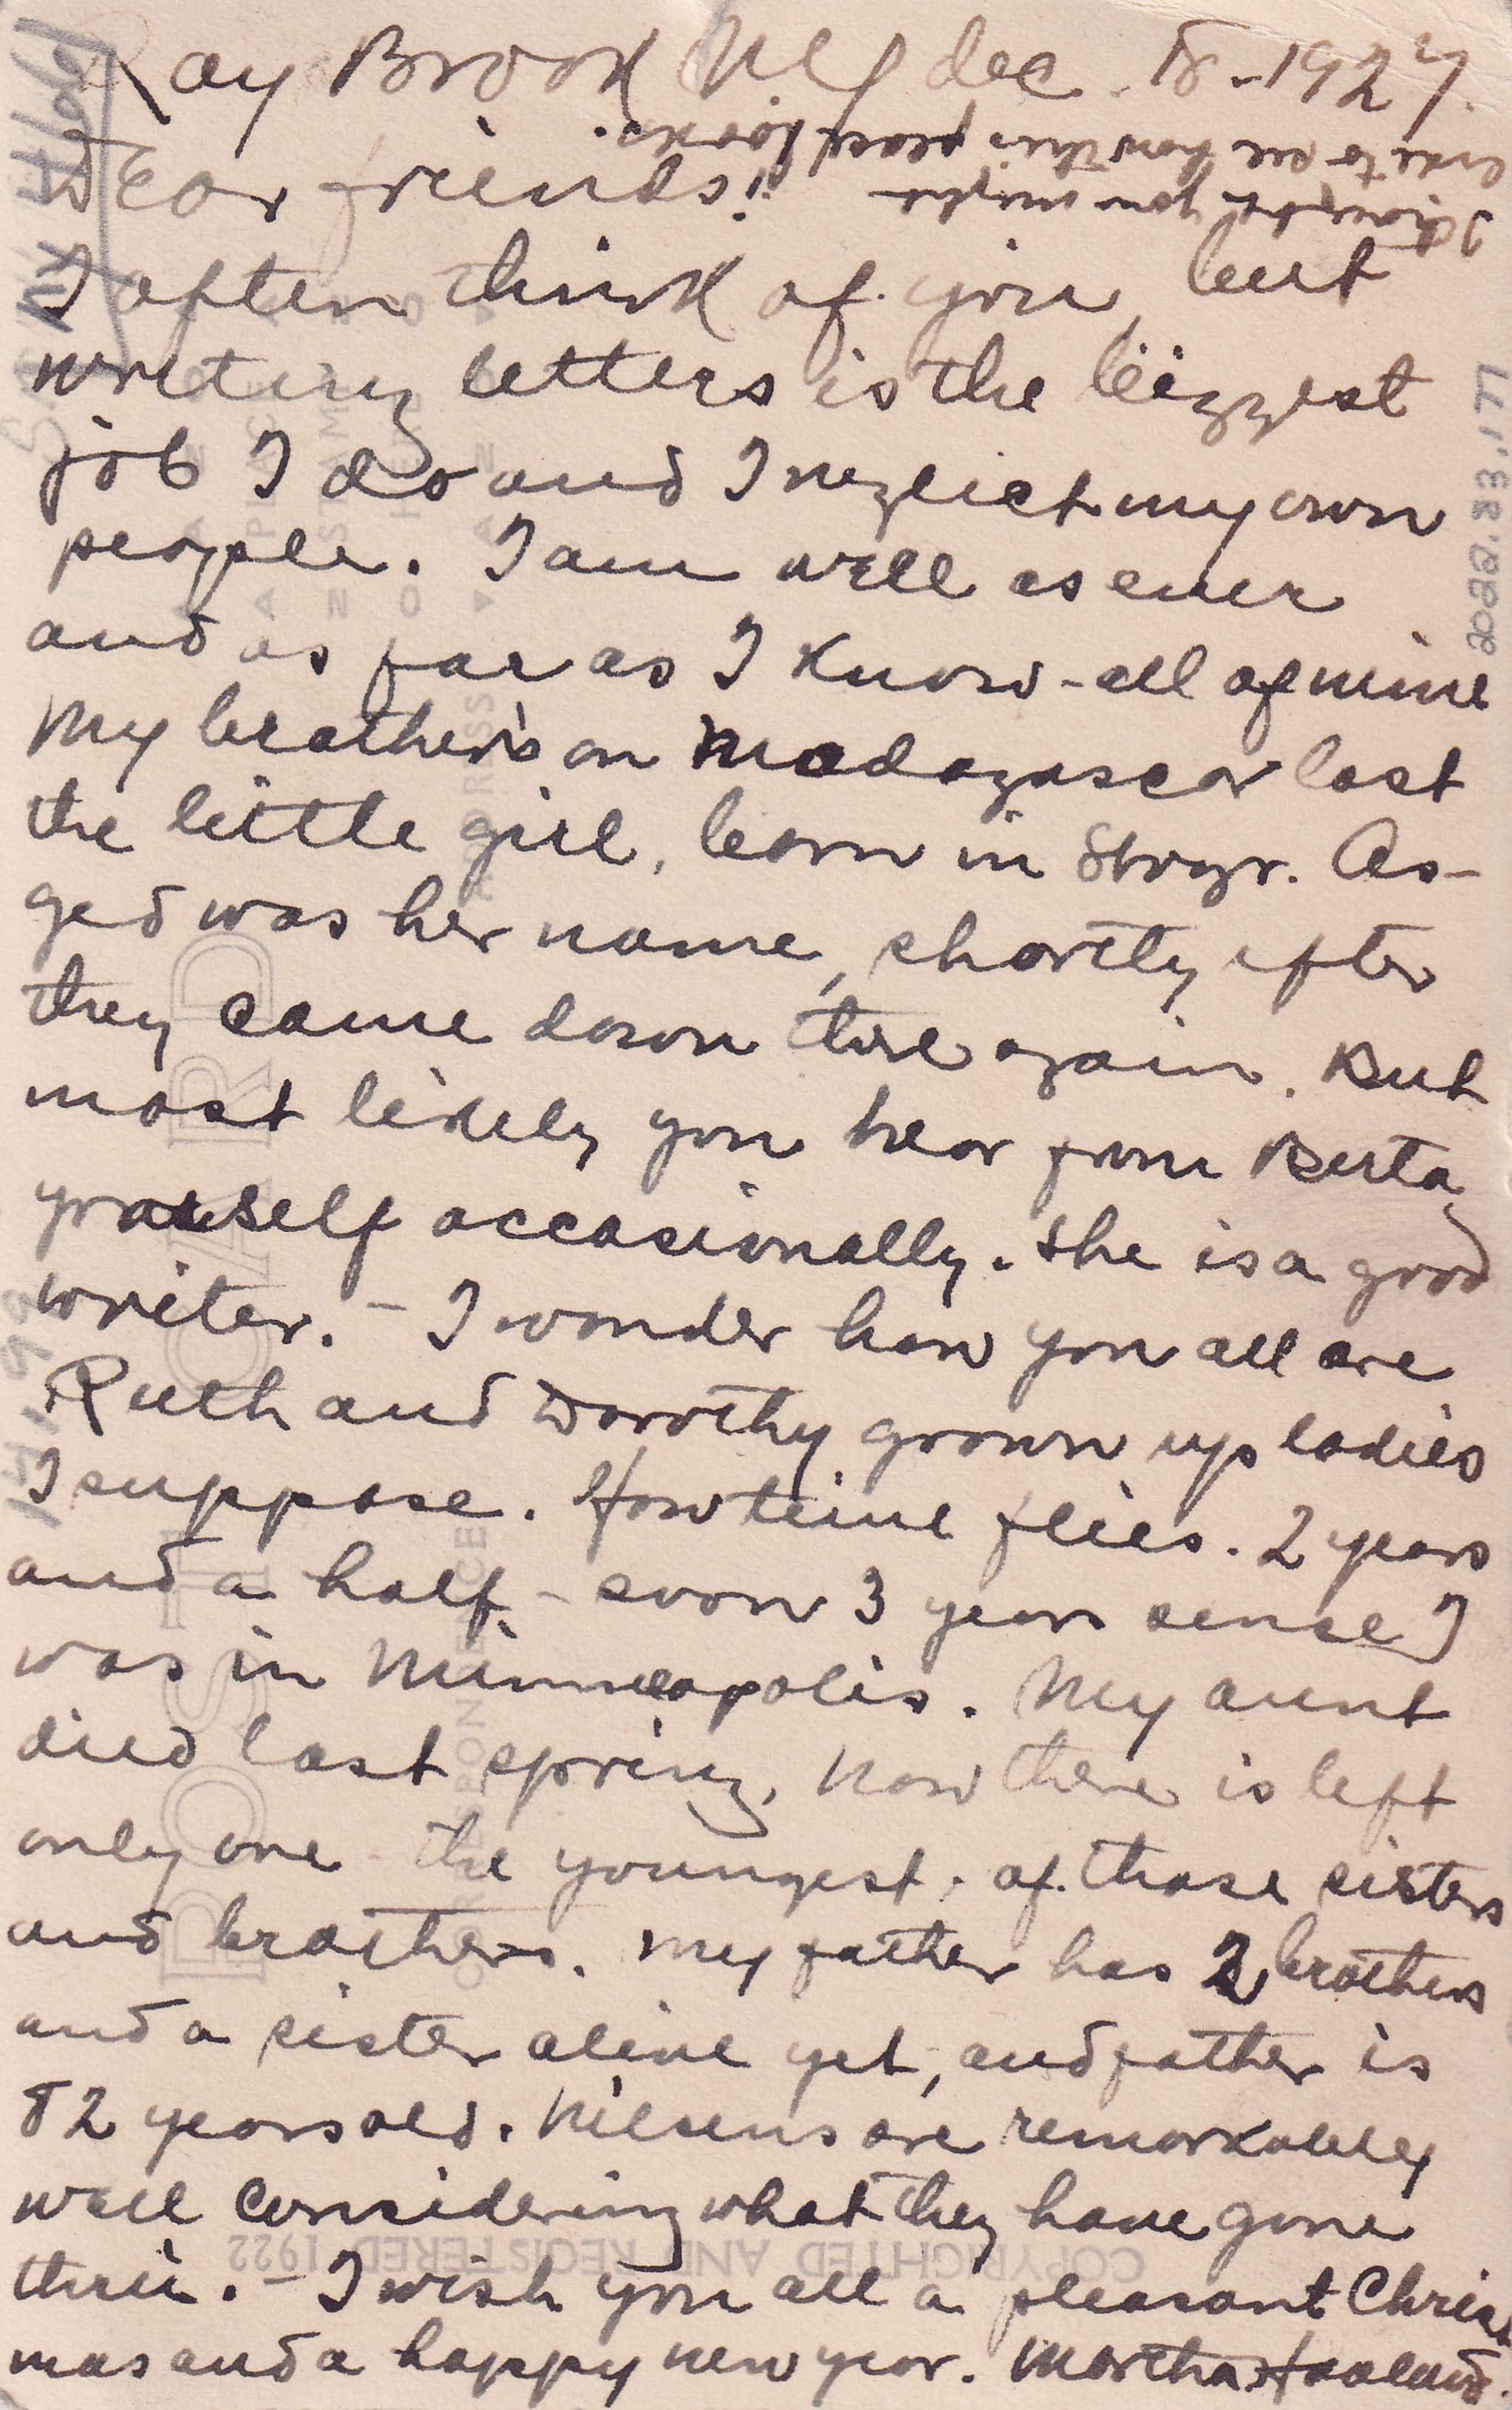 Ray Brook N.Y. dec. 18-1927.
Dear friends!
I thought you might
like to see how this place looks.
I often think of you, but
writing letters is the biggest
job I do and I neglect my own
people. I am well as ever
and as far as I know - all of mine
My brother's on Madagascar lost
the little girl, born in Stvgr. As-
ged was her name, shortly after
they came down there again. But
most likely you hear from Berta
yourself occasionally. She is a good
writer. - I wonder how you all are
Ruth and Dorothy grown up ladies
I suppose. How time flies. 2 years
and a half - soon 3 years sense I
was in Minneapolis. My aunt
died last spring, now there is left
only one - the youngest, of those sisters
and brothers. My father has 2 brothers
and a sister alive yet, and father is
82 years old. Nilsens are remarkably
well considering what they have gone
thru. - I wish you all a pleasant Christ
mas and a happy new year. Martha Haaland.
2022.23.177
POST CARD
CORRESPONDENCE
ADDRESS
PLACE
STAMP
HERE
COPYRIGHTED AND REGISTERED 1922